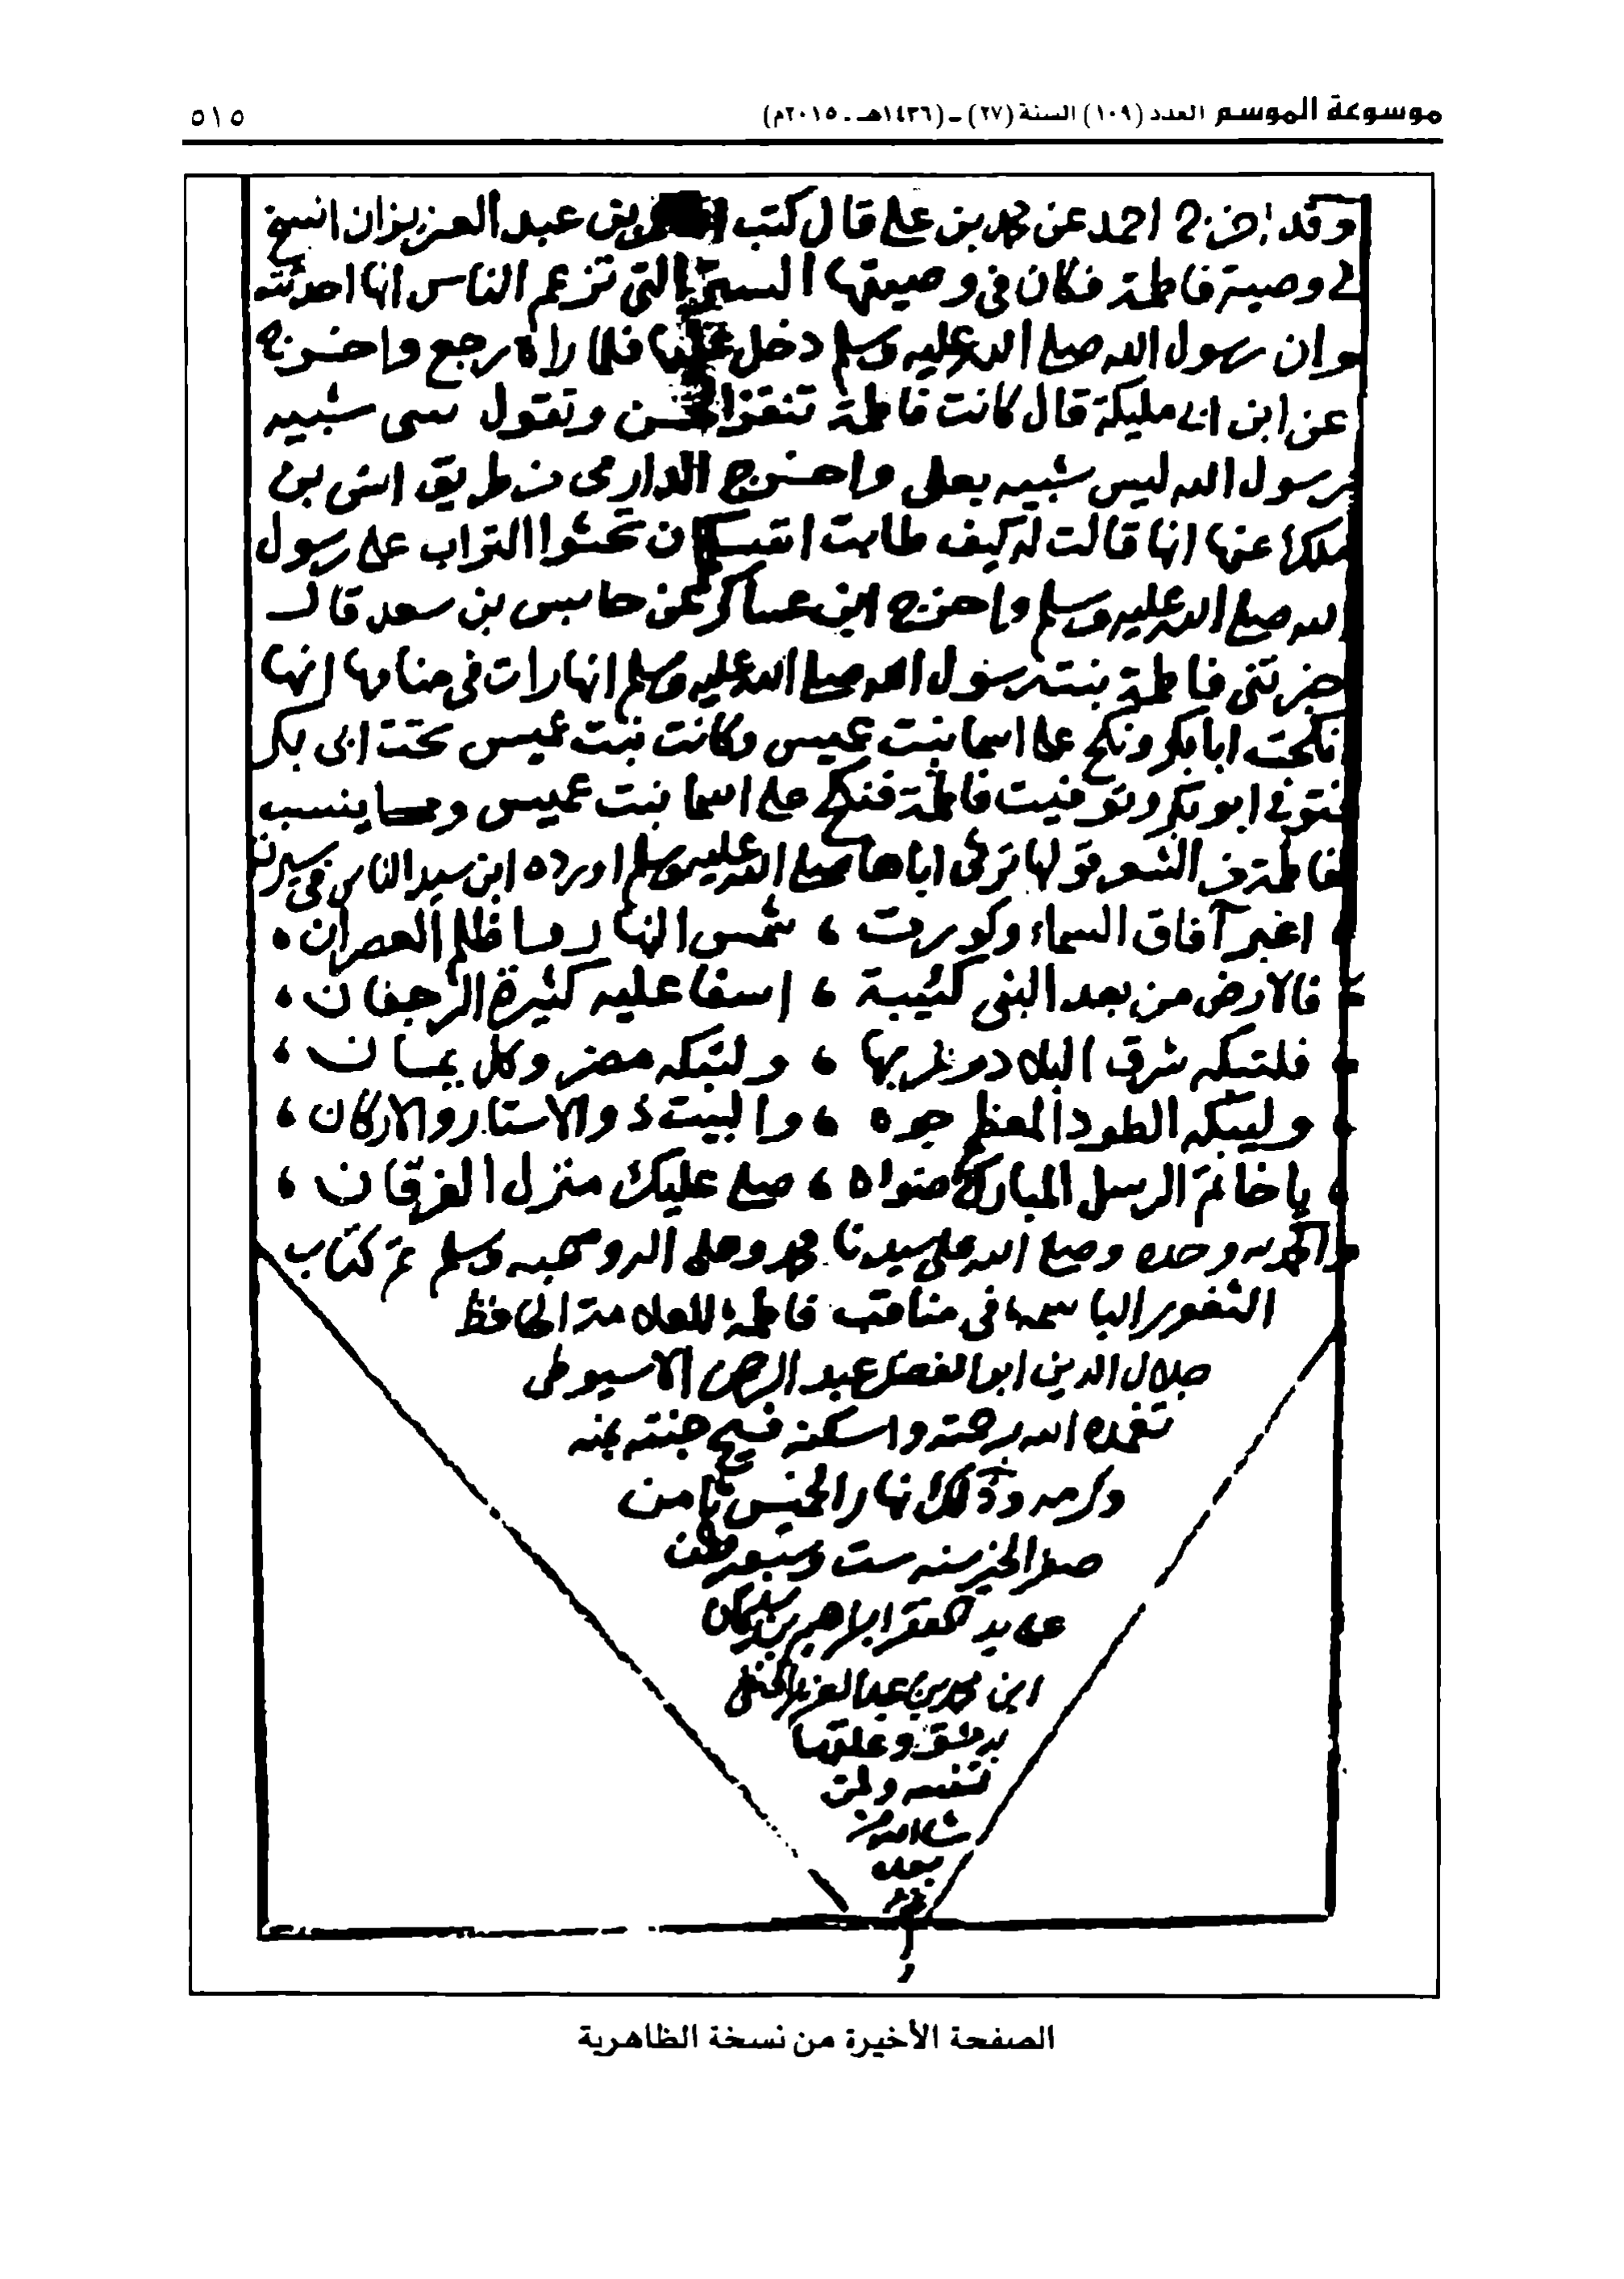 موسوعة الموسم العدد (١٠٩) السنة (٢٧) ـ (١٤٣٦هـ ـ ٢٠١٥م)
٥١٥
وقد اخرج احمد عن محمد بن علي قال كتب بن عبد العزيز ان انسخ
لي وصية فاطمة فكان في وصيتها الستر التي تزعم الناس انها احدثته
وان رسول الله صلى الله عليه وسلم دخل عليها فلما راه رجع واخرج
عن ابن ابي مليكة قال كانت فاطمة تنقز الحسن وتقول شبيه
برسول الله ليس شبيه بعلي واخرج الدارمي من طريق انس بن
عنها انها قالت له كيف طابت ان تحثوا التراب على رسول
الله صلى الله عليه وسلم واخرج ابن عساكر عن حابس بن سعد قال
اخبرتني فاطمة بنت رسول الله صلى الله عليه وسلم انها رات في منامها انها
نكحت ابا بكر ونكح علي اسما بنت عميس وكانت بنت عميس تحت ابي بكر
فتوفي ابو بكر وتوفيت فاطمة فنكح علي اسما بنت عميس ومما ينسب
لفاطمة من الشعر قولها ترثي اباها صلى الله عليه وسلم اورده ابن سيد الناس في سيرته
اغبر آفاق السماء وكورت ، شمس النهار واظلم العصران ،
فالارض من بعد النبي كئيبة ، اسفا عليه كثيرة الرجفان ،
فلتبكه شرق البلاد وغربها ، ولتبكه مضر وكل يمان ،
وليبكه الطود المعظم جوه ، والبيت ذو الاستار والاركان ،
يا خاتم الرسل المبارك ضواه ، صلى عليك منزل الفرقان ،
والحمد لله وحده وصلى الله على سيدنا محمد وعلى اله وصحبه وسلم تم كتاب
الثغور الباسمة في مناقب فاطمة للعلامة الحافظ
جلال الدين ابو الفضل عبد الرحمن الاسيوطي
تغمده الله برحمته واسكنه فسيح جنته بمنه
وكرمه وذلك نهار الخميس ثامن
صفر الخير سنه ست
على يد ابراهيم بن سليمان
ابن محمد بن عبد العزيز الحنفي
بدمشق وعلقها
لنفسه ولمن
شاء الله من
بعده
الصفحة الأخيرة من نسخة الظاهرية